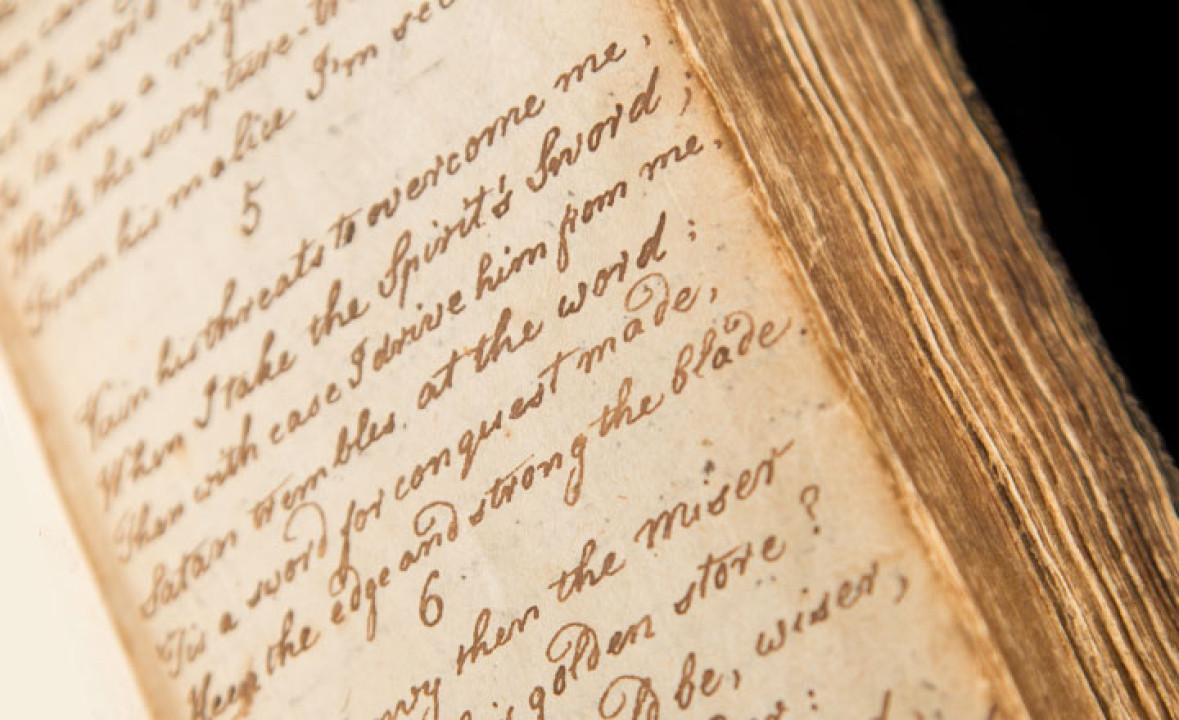 the
to me a
While the scripture-
From his malice I'm
5
Vain his threats to overcome me,
When I take the Spirit's Sword;
Then with ease I drive him from me.
Satan trembles at the word:
'Tis a sword for conquest made,
Keen the edge and strong the blade.
6
then the miser
golden store?
be, wiser,